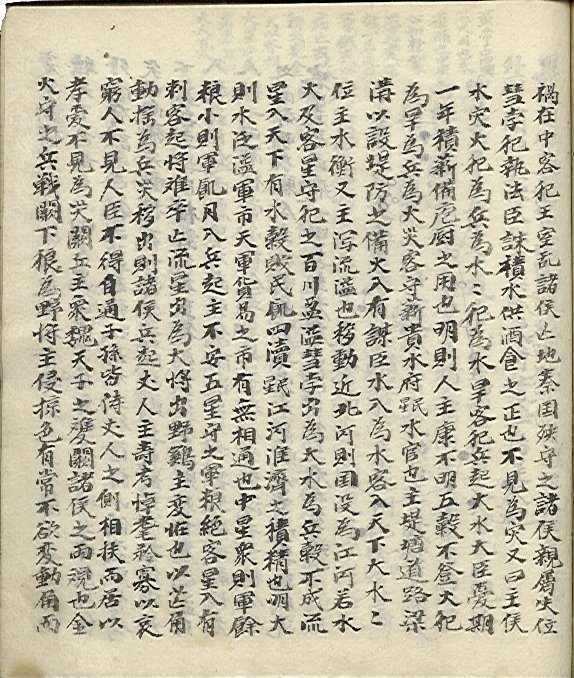 禍在中客犯王室乱諸侯亡地秦国殃守之諸侯親属失位
彗孛犯執法臣誅積水供酒食之正也不見為灾又曰主侯
水灾火犯為兵為水〻犯為水旱客犯兵起大水大臣憂期
一年積薪備庖厨之用也明則人主康不明五穀不登火犯
為旱為兵為火災客守薪貴水府眂水官也主堤塘道路梁
溝以設堤防之備火入有謀臣水入為水客入天下大水〻
位主水衡又主瀉流溢也移動近北河則国没為江河若水
火及客星守犯之百川盈溢彗孛出為大水為兵穀不成流
星入天下有水穀敗民飢四瀆眂江河淮濟之積精也明大
則水泛溢軍市天軍貨易之市有無相通也中星衆則軍餘
粮小則軍飢月入兵起主不安五星守之軍粮絶客星入有
刺客起将離卒亡流星出為大将出野鷄主変恠也以芒角
動揺為兵災移出則諸侯兵起丈人主壽考悼耄矜寡以哀
窮人不見人臣不得自通子孫皆侍丈人之側相扶而居以
孝愛不見為災闕丘主衆魏天子之雙闕諸侯之両観也金
火守之兵戦闕下狼為野将主侵掠色有常不欲変動角而